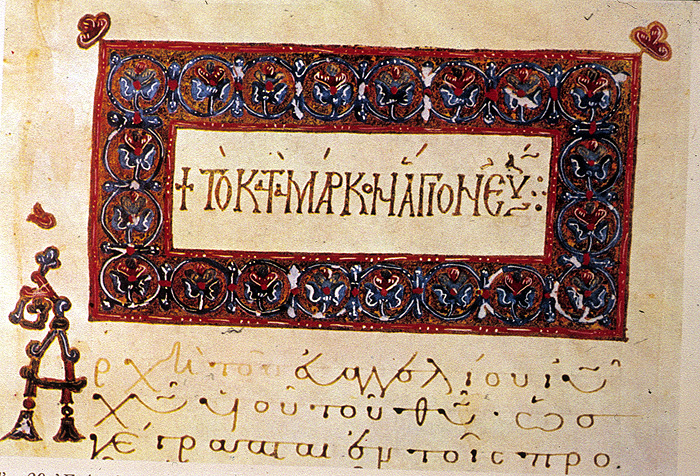 + ΤὸΚΑΤὰΜΆΡΚΟΝἍΓΙΟΝΕΥ
Ἀρχὴ τοῦ εὐαγγελίου ἰῦ
χῦ υἱοῦ τοῦ θῦ· ὡσ
γέγραπται ἐν τοῖς προ